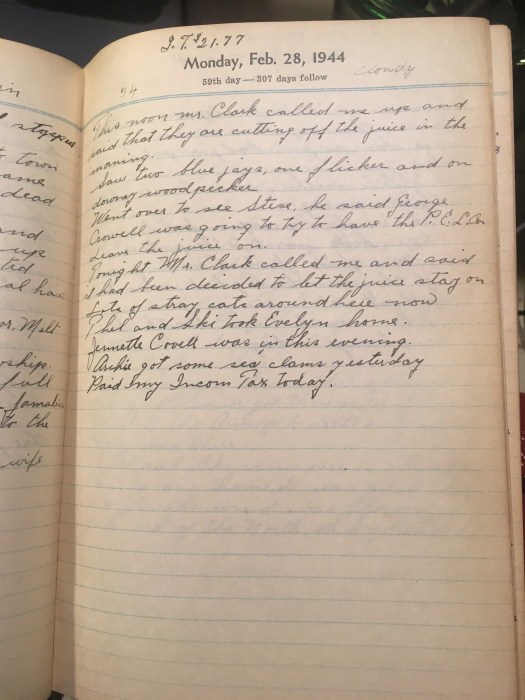 in
stopped
town
ame
dead
and
up
tid
al have
or. Milt
ship.
full
familie
to the
wife
I.T. $21.77
Monday, Feb. 28, 1944
59th day — 307 days follow
cloudy
34
This noon Mr. Clark called me up and
said that they are cutting off the juice in the
morning.
Saw two blue jays, one flicker and on
downy woodpecker
Went over to see Steve, he said George
Crowell was going to try to have the P.C.L.Co
leave the juice on.
Tonight Mr. Clark called me and said
it had been decided to let the juice stay on
Lots of stray cats around here now
Phel and Ski took Evelyn home.
Jennette Covell was in this evening.
Archie got some sea clams yesterday
Paid my Incom Tax today.